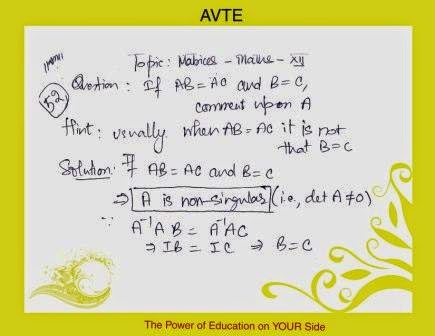 AVTE
Topic: Matrices - Maths - XII
52
Question: If AB = AC and B = C,
comment upon A
Hint: usually when AB = AC it is not
that B = C
Solution: If AB = AC and B = C
⇒ A is non-singular (i.e., det A ≠ 0)
∵ A⁻¹AB = A⁻¹AC
⇒ IB = IC ⇒ B = C
The Power of Education on YOUR Side